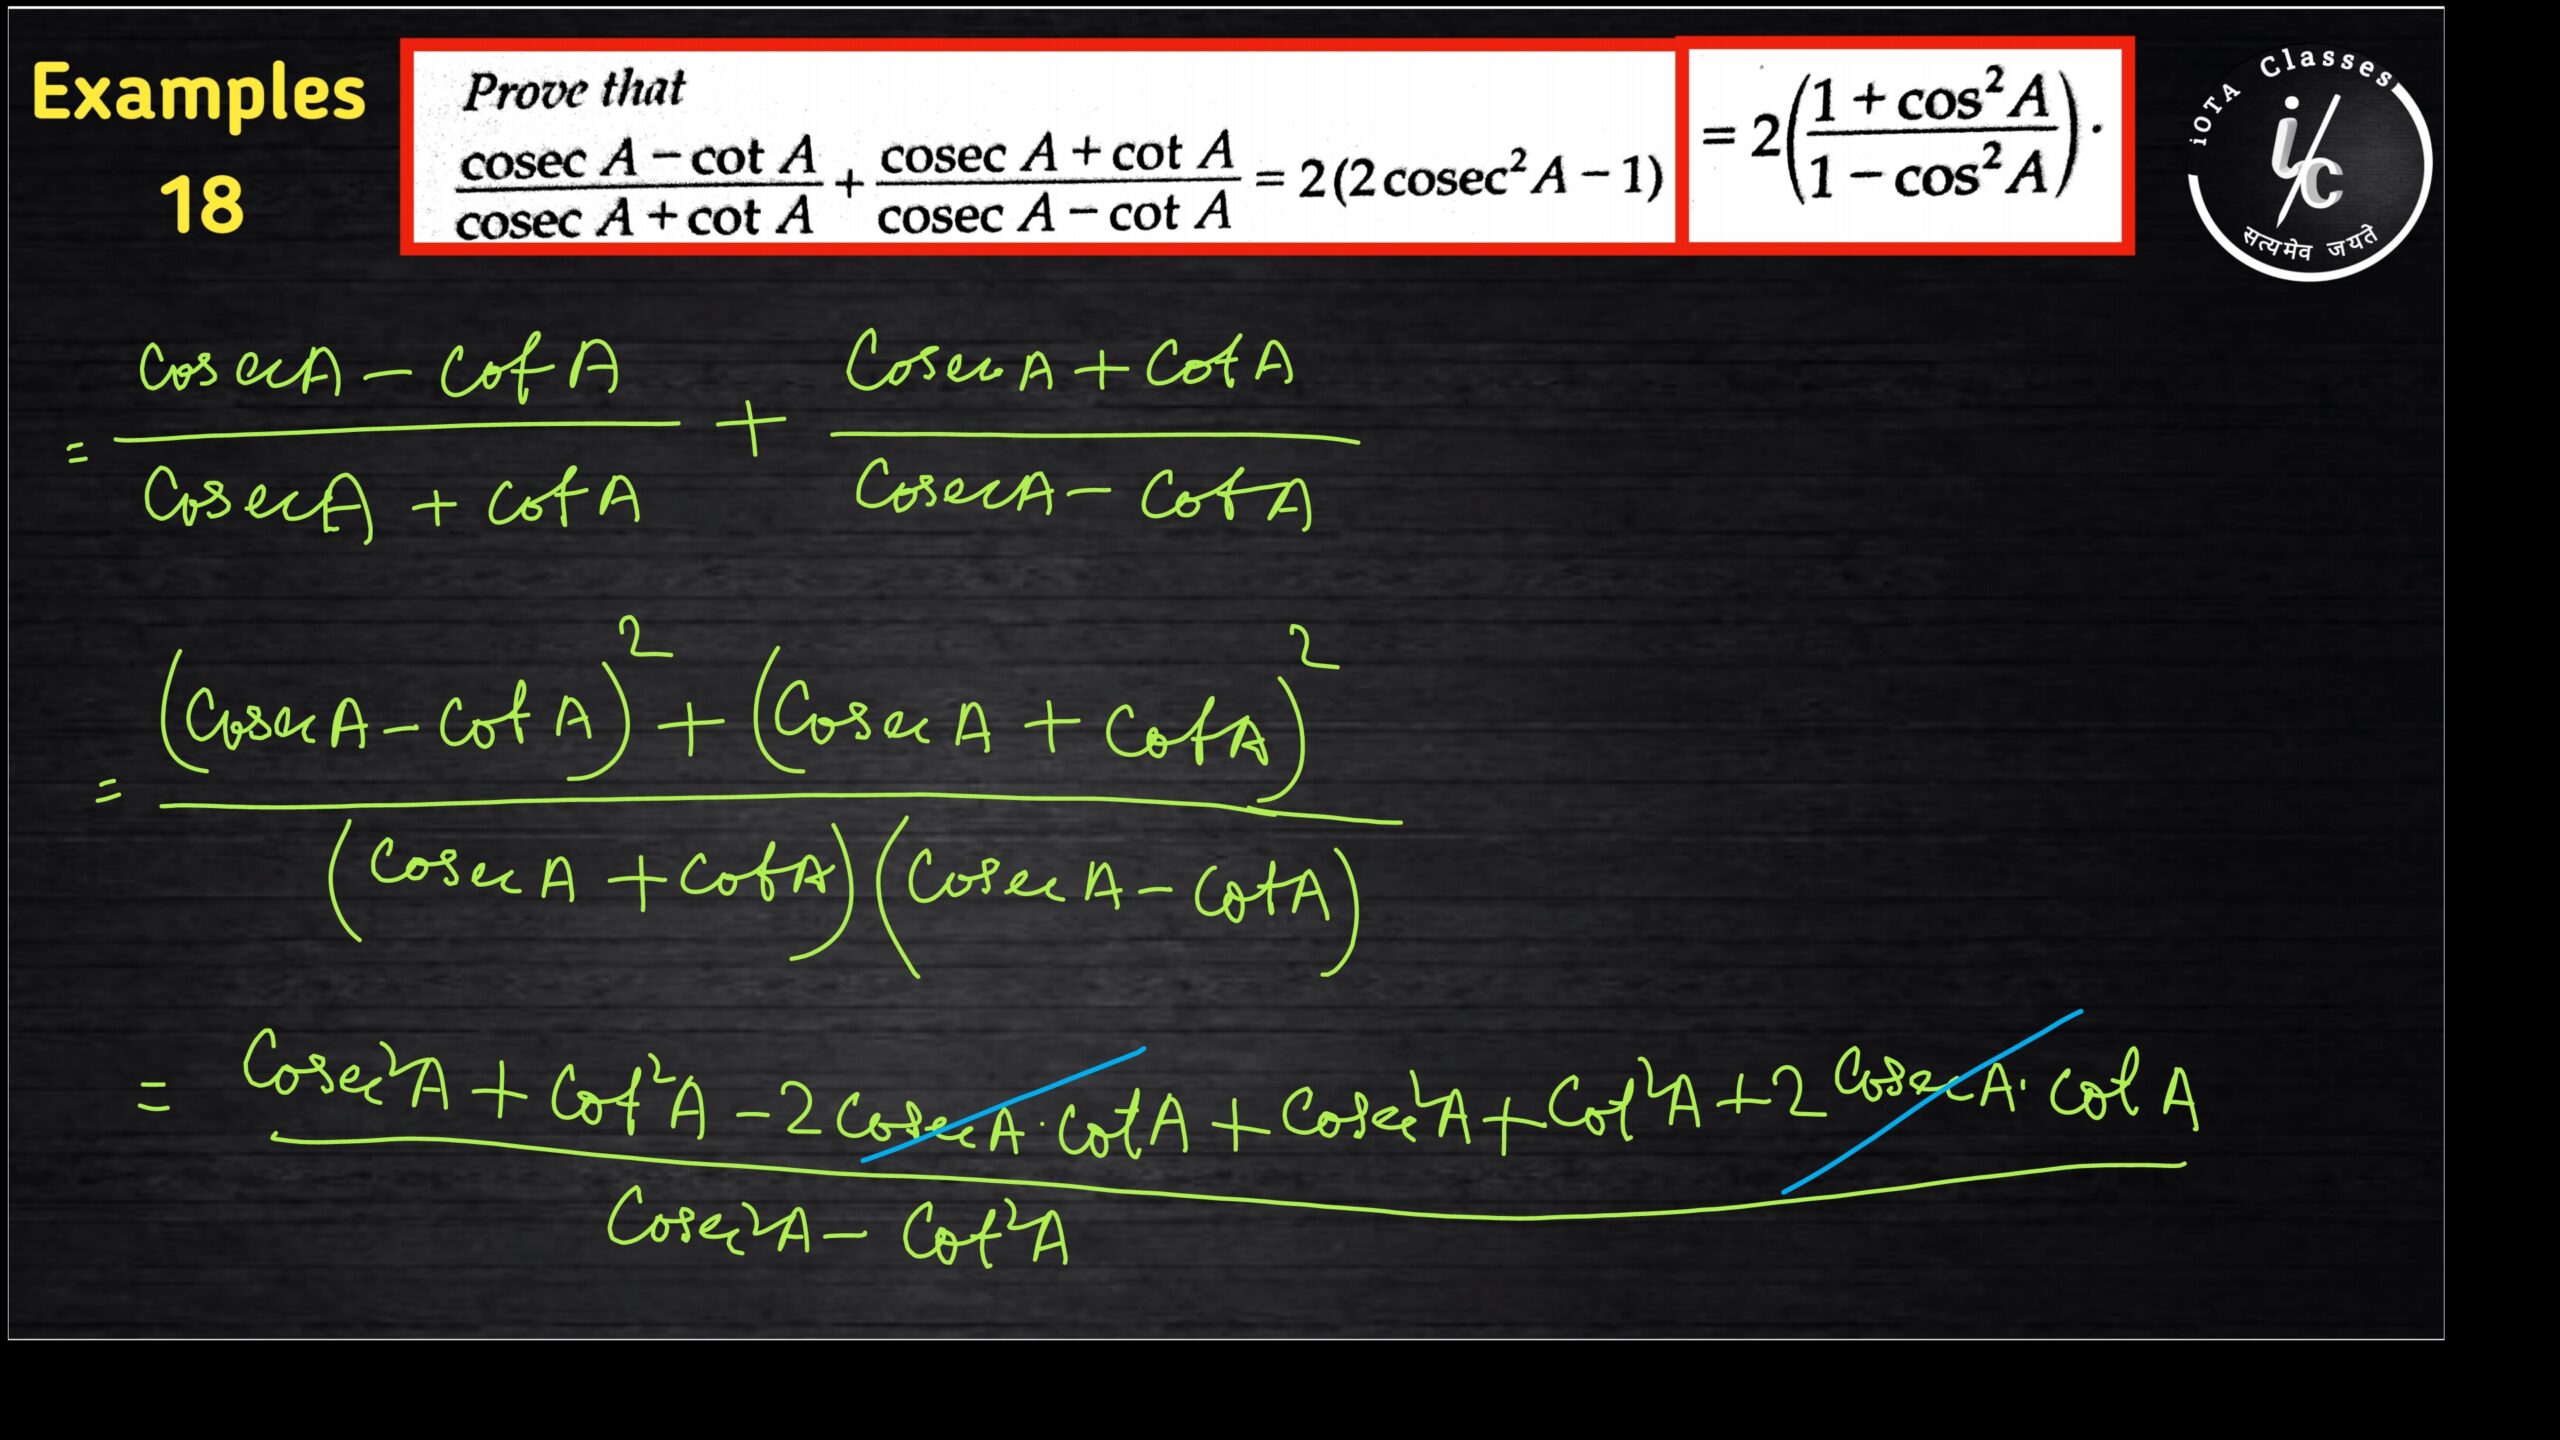 Examples
18
Prove that
cosec A − cot A / cosec A + cot A + cosec A + cot A / cosec A − cot A = 2(2cosec² A − 1)
= 2(1 + cos² A / 1 − cos² A).
iOTA Classes
i/C
सत्यमेव जयते
= Cosec A − Cot A / Cosec A + Cot A + Cosec A + Cot A / Cosec A − Cot A
= (Cosec A − Cot A)² + (Cosec A + Cot A)² / (Cosec A + Cot A)(Cosec A − Cot A)
= Cosec²A + Cot²A − 2 Cosec A · Cot A + Cosec²A + Cot²A + 2 Cosec A · Cot A / Cosec²A − Cot²A